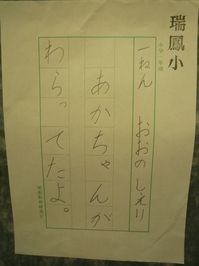 瑞鳳小
一ねん おおの しえり
あかちゃんが
わらってたよ。